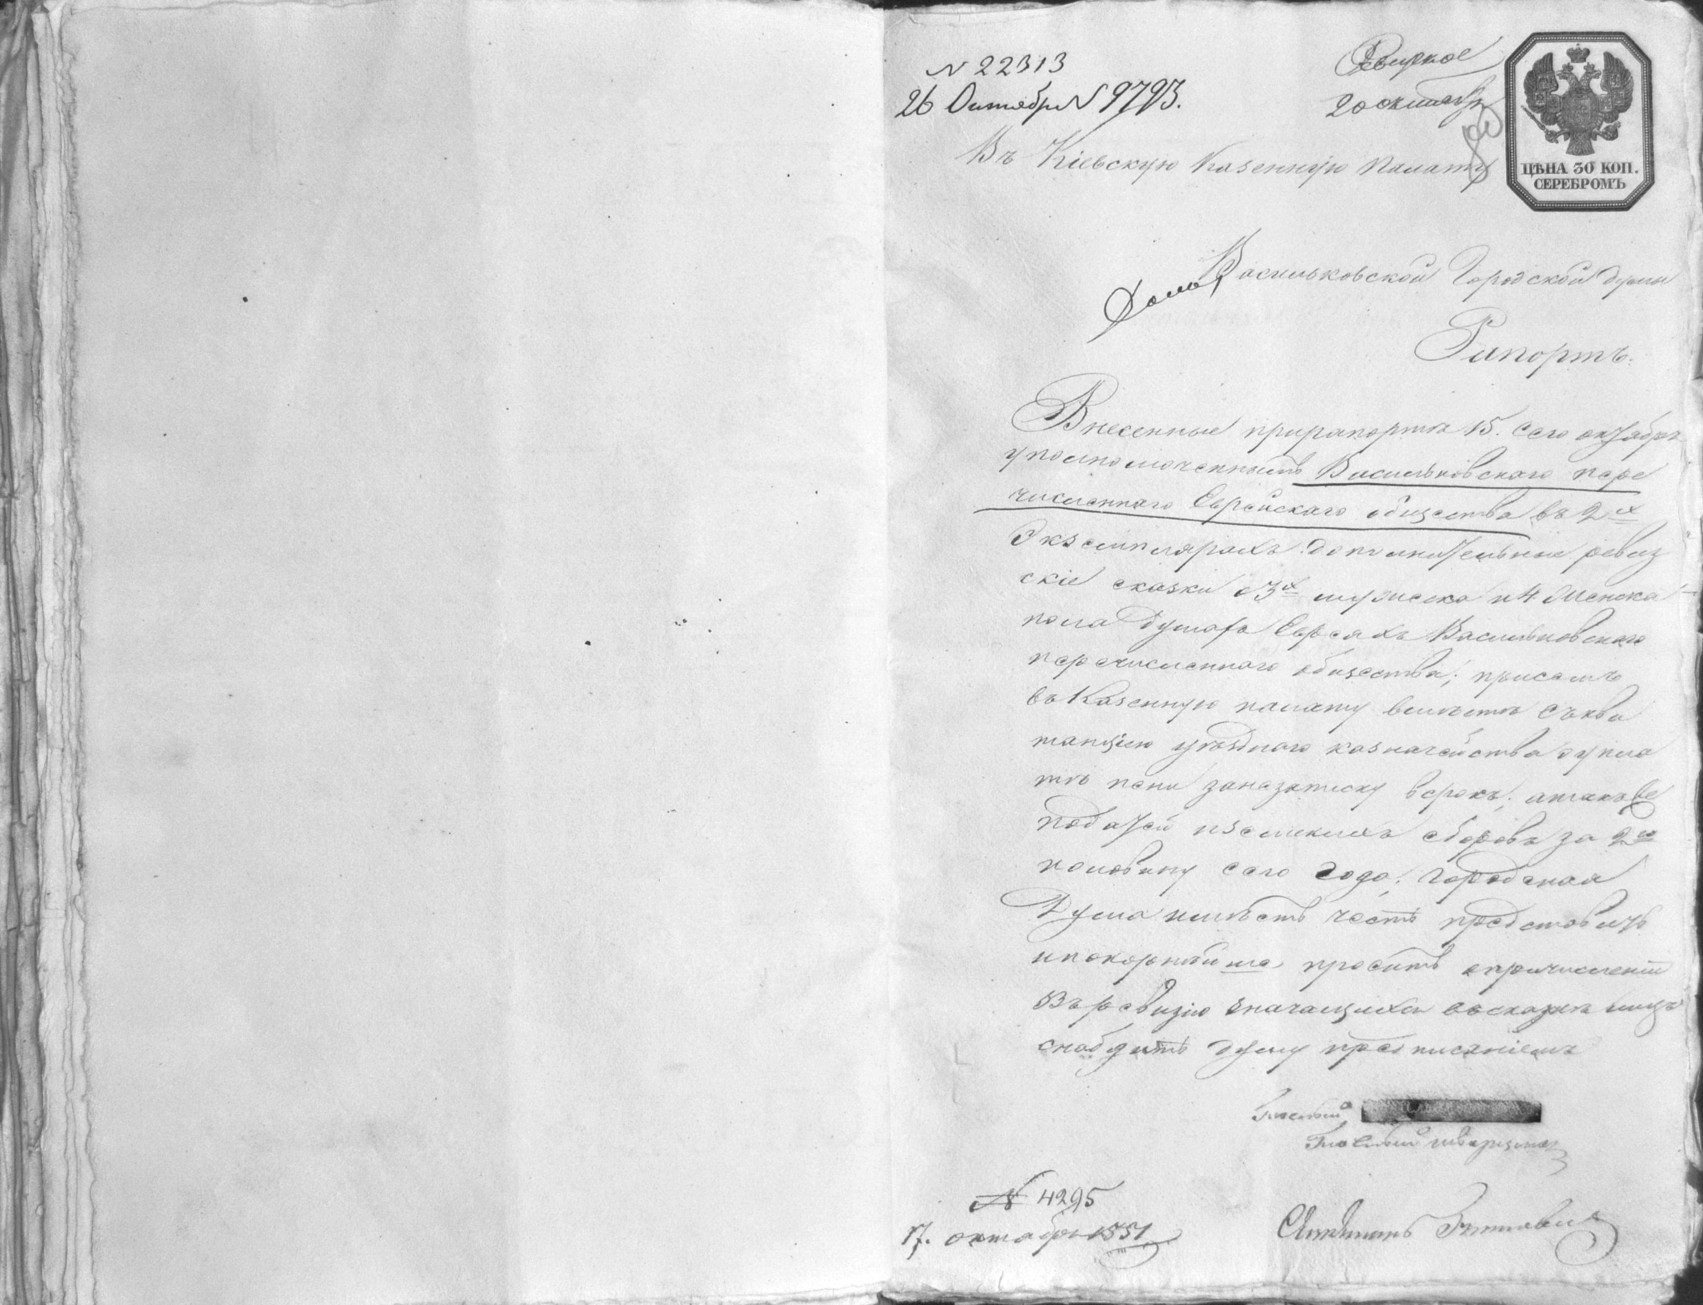 N 22313
26 Октября N 9793.
20 октября
ЦѢНА 30 КОП.
СЕРЕБРОМЪ
Въ Кіевскую Казенную Палату
Васильковской Городской Думы
Рапортъ.
Внесенные при рапортѣ 15. сего октября
уполномоченнымъ Васильковского пере
численнаго Еврейскаго общества въ 2х
Экземплярахъ дополнительные ревиз
скіе сказки о 3х мужеска и 4 женска
пола душахъ Евреяхъ Васильковскаго
перечисленного общества; при семъ
въ Казенную палату вмѣстѣ съ кви
танціею уѣзднаго казначейства о упла
тѣ пени за незаписку в срокъ; а также
податей и земскихъ сборовъ за 2ю
половину сего года; Городская
Дума имѣетъ честь представить
и покорнѣйше просить о причисленіи
въ ревизію значащихся въ сказкѣ лицъ
снабдить думу предписаніемъ
Гласный
Гласный
N 4295
17. октября 1851